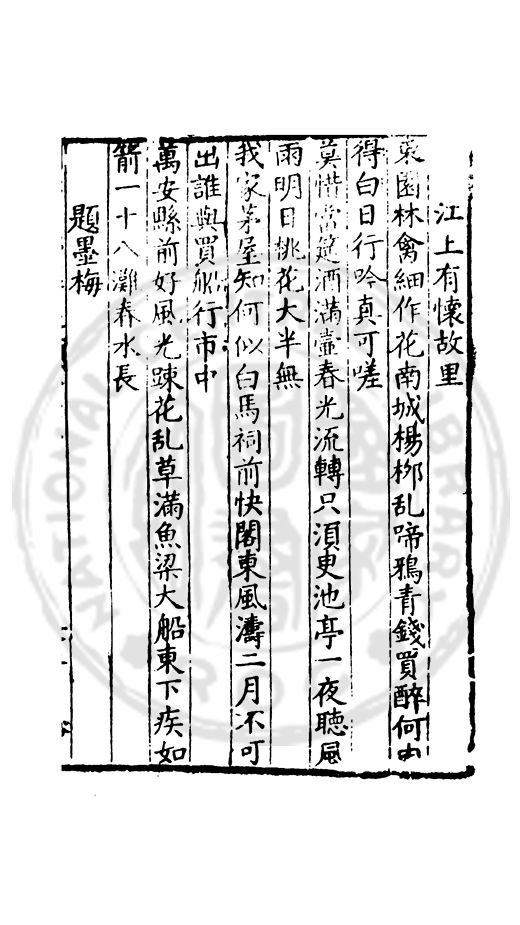 江上有懷故里
東園林禽細作花南城楊栁乱啼鴉青錢買醉何由
得白日行吟真可嗟
莫惜當筵酒滿壷春光流轉只湏更池亭一夜聽風
雨明日桃花大半無
我家茅屋知何似白馬祠前快閣東風濤二月不可
出誰與買船行市中
萬安縣前好風光踈花乱草滿魚梁大船東下疾如
箭一十八灘春水長
題墨梅